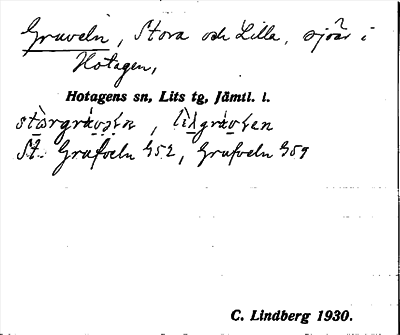 Graveln, Stora och Lilla, sjöar i
Hotagen,
Hotagens sn, Lits tg, Jämtl. l.
St. Grafveln 452, Grafveln 459
C. Lindberg 1930.